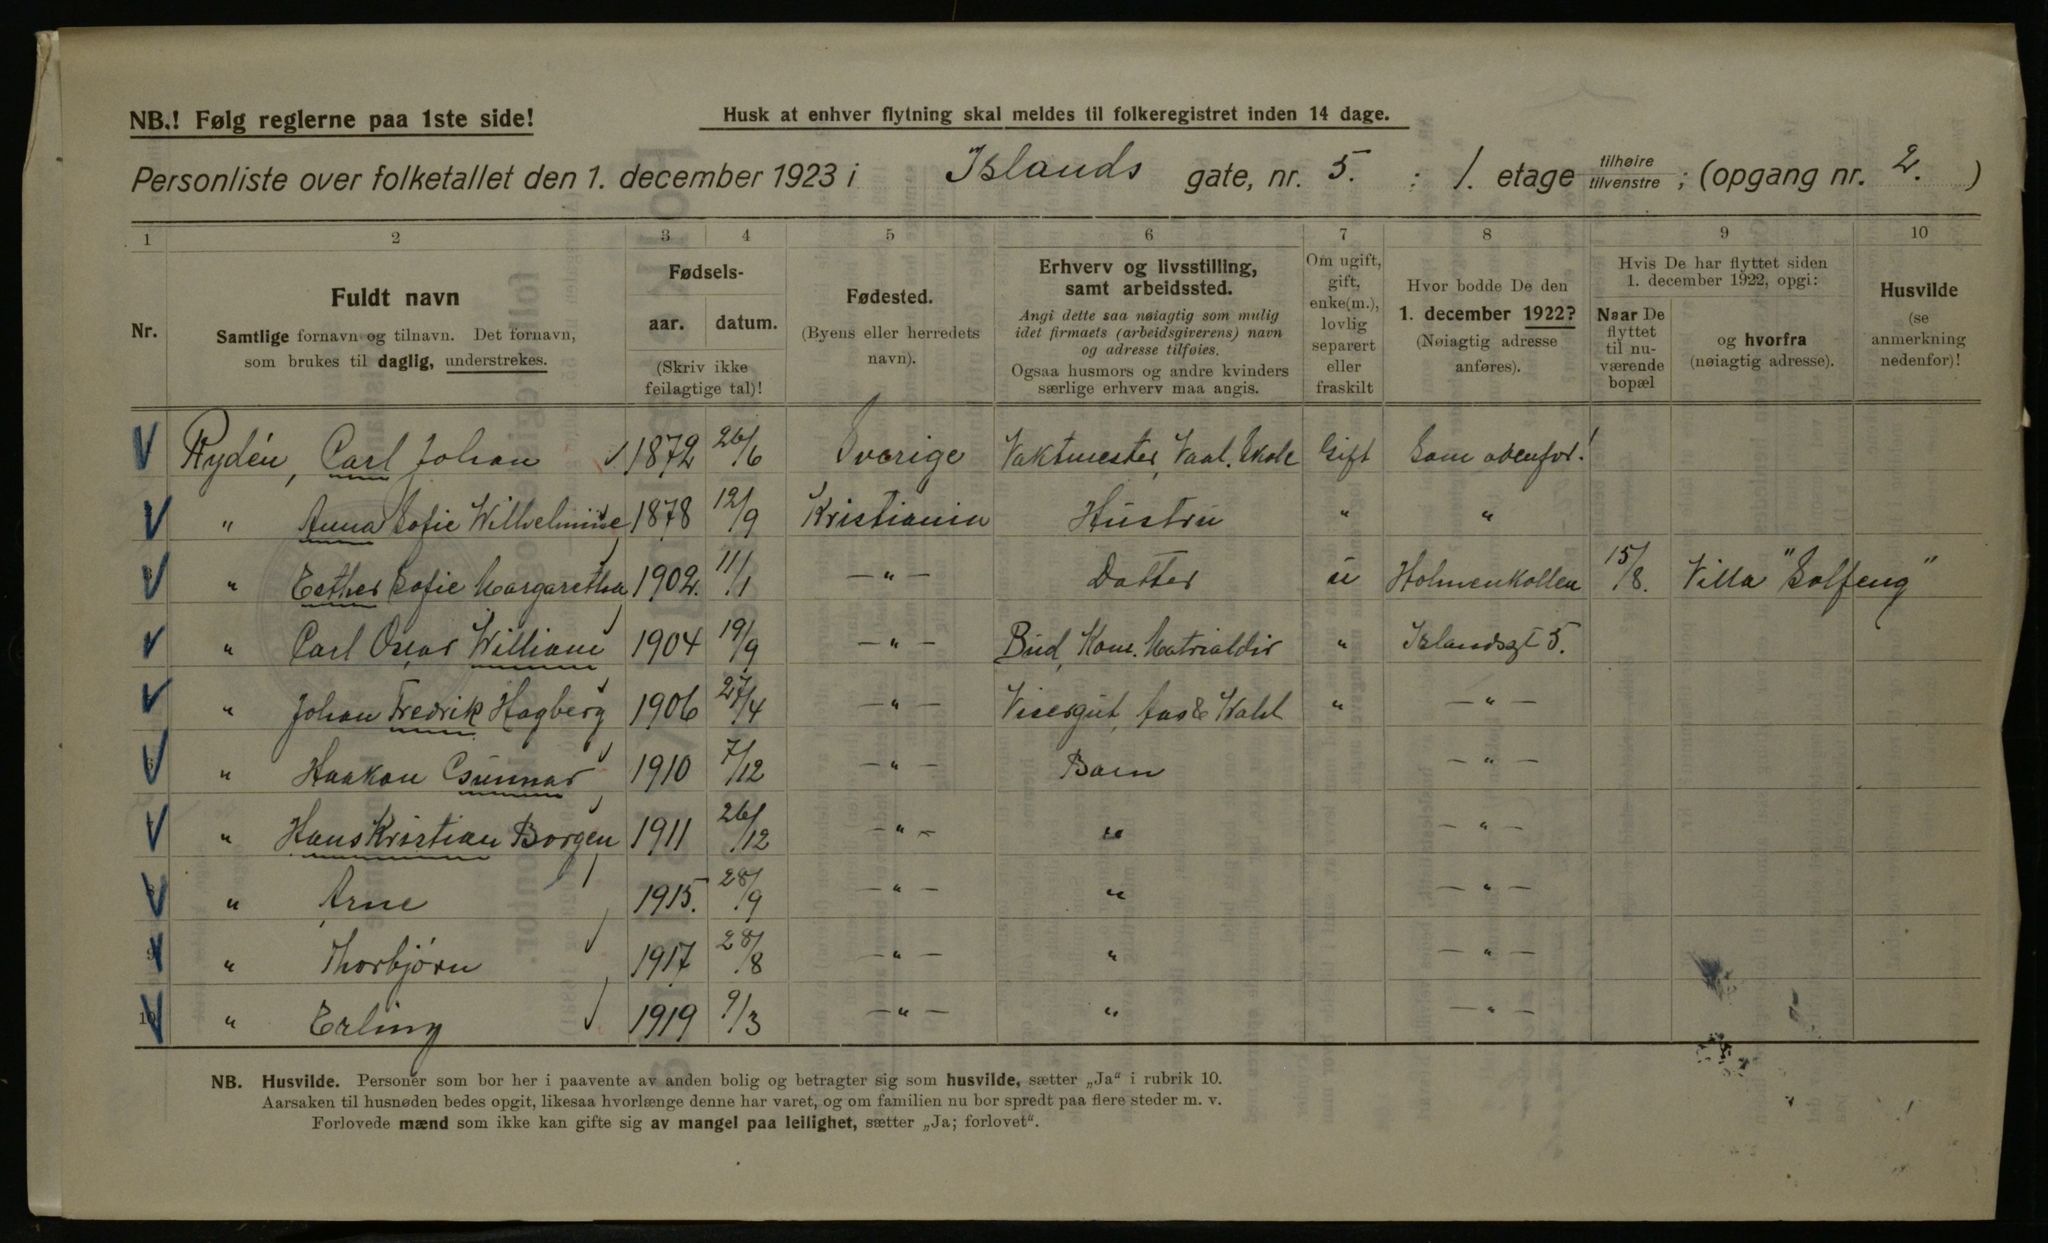 NB.! Følg reglerne paa 1ste side!
Husk at enhver flytning skal meldes til folkeregistret inden 14 dage.
Personliste over folketallet den 1. december 1923 i Islands gate, nr. 5. : 1. etage tilhøire tilvenstre ; (opgang nr. 2. )
1 2 3 4 5 6 7 8 9 10
Nr.
Fuldt navn
Samtlige fornavn og tilnavn. Det fornavn,
som brukes til daglig, understrekes.
Fødsels-
aar. datum.
(Skriv ikke
feilagtige tal)!
Fødested.
(Byens eller herredets
navn).
Erhverv og livsstilling,
samt arbeidssted.
Angi dette saa nøiagtig som mulig
idet firmaets (arbeidsgiverens) navn
og adresse tilføies.
Ogsaa husmors og andre kvinders
særlige erhverv maa angis.
Om ugift,
gift,
enke(m.),
lovlig
separert
eller
fraskilt
Hvor bodde De den
1. december 1922?
(Nøiagtig adresse
anføres).
Hvis De har flyttet siden
1. december 1922, opgi:
Naar De
flyttet
til nu-
værende
bopæl
og hvorfra
(nøiagtig adresse).
Husvilde
(se
anmerkning
nedenfor)!
Rydén, Carl Johan 1872 26/6 Sverige Vaktmester, Vaal. Skole Gift Som ovenfor!
" Anna Sofie Wilhelmine 1878 12/9 Kristiania Hustru " "
" Esther Sofie Margaretha 1902. 11/1 — " — Datter u Holmenkollen 15/8. Villa "Solfeng"
" Carl Oscar William 1904 19/9 — " — Bud, Kom. Matrialdir " Islandsgt 5.
" Johan Fredrik Hagberg 1906 27/4 — " — Visergut, Aas & Wahl " — " —
" Haakon Gunnar 1910 7/12 — " — Barn — " —
" Hans Kristian Borgen 1911 26/12 — " — " — " —
" Arne 1915. 28/9 — " — " — " —
" Thorbjørn 1917 28/8 — " — " — " —
10 " Erling 1919 9/3 — " — " — " —
NB. Husvilde. Personer som bor her i paavente av anden bolig og betragter sig som husvilde, sætter „Ja“ i rubrik 10.
Aarsaken til husnøden bedes opgit, likesaa hvorlænge denne har varet, og om familien nu bor spredt paa flere steder m. v.
Forlovede mænd som ikke kan gifte sig av mangel paa leilighet, sætter „Ja; forlovet“.